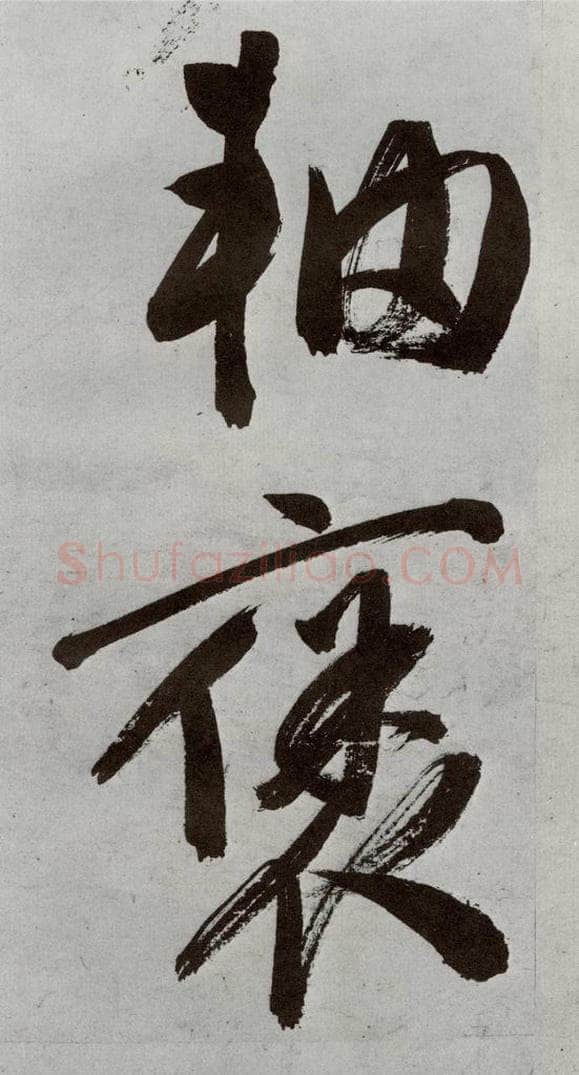 軸
褒
Shufaziliao.COM